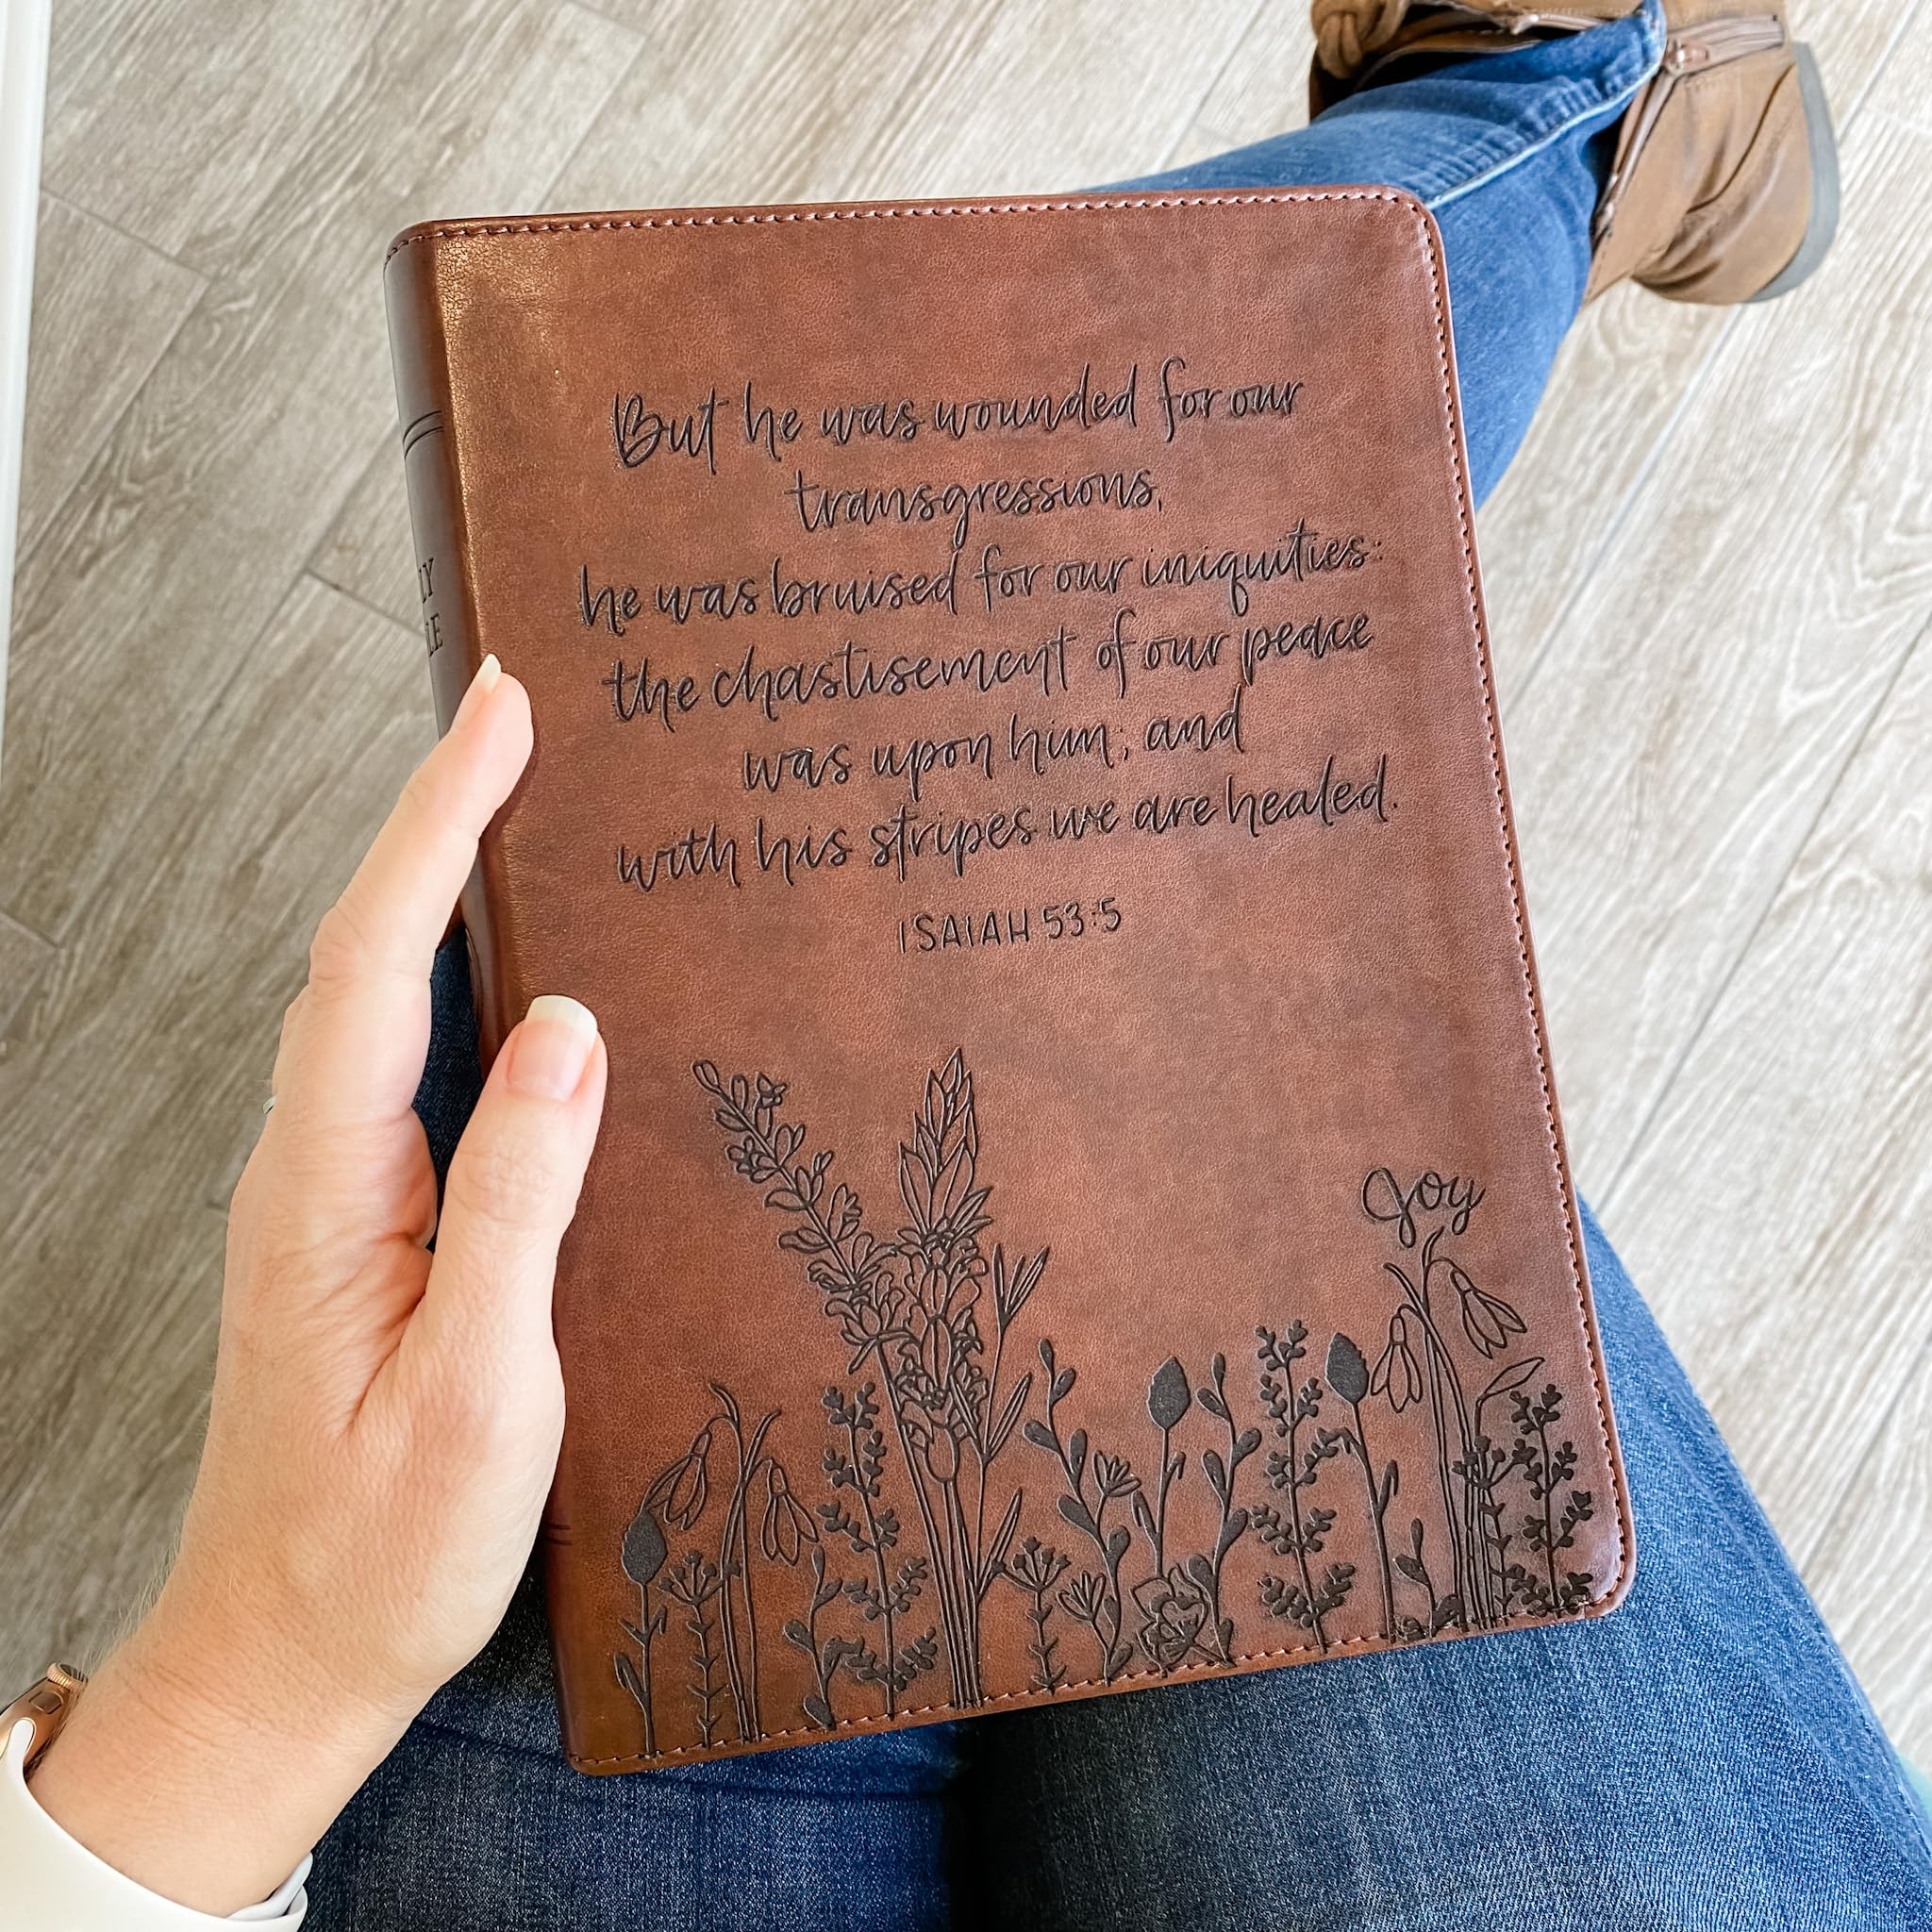 But he was wounded for our
transgressions,
he was bruised for our iniquities:
the chastisement of our peace
was upon him; and
with his stripes we are healed.
ISAIAH 53:5
Joy